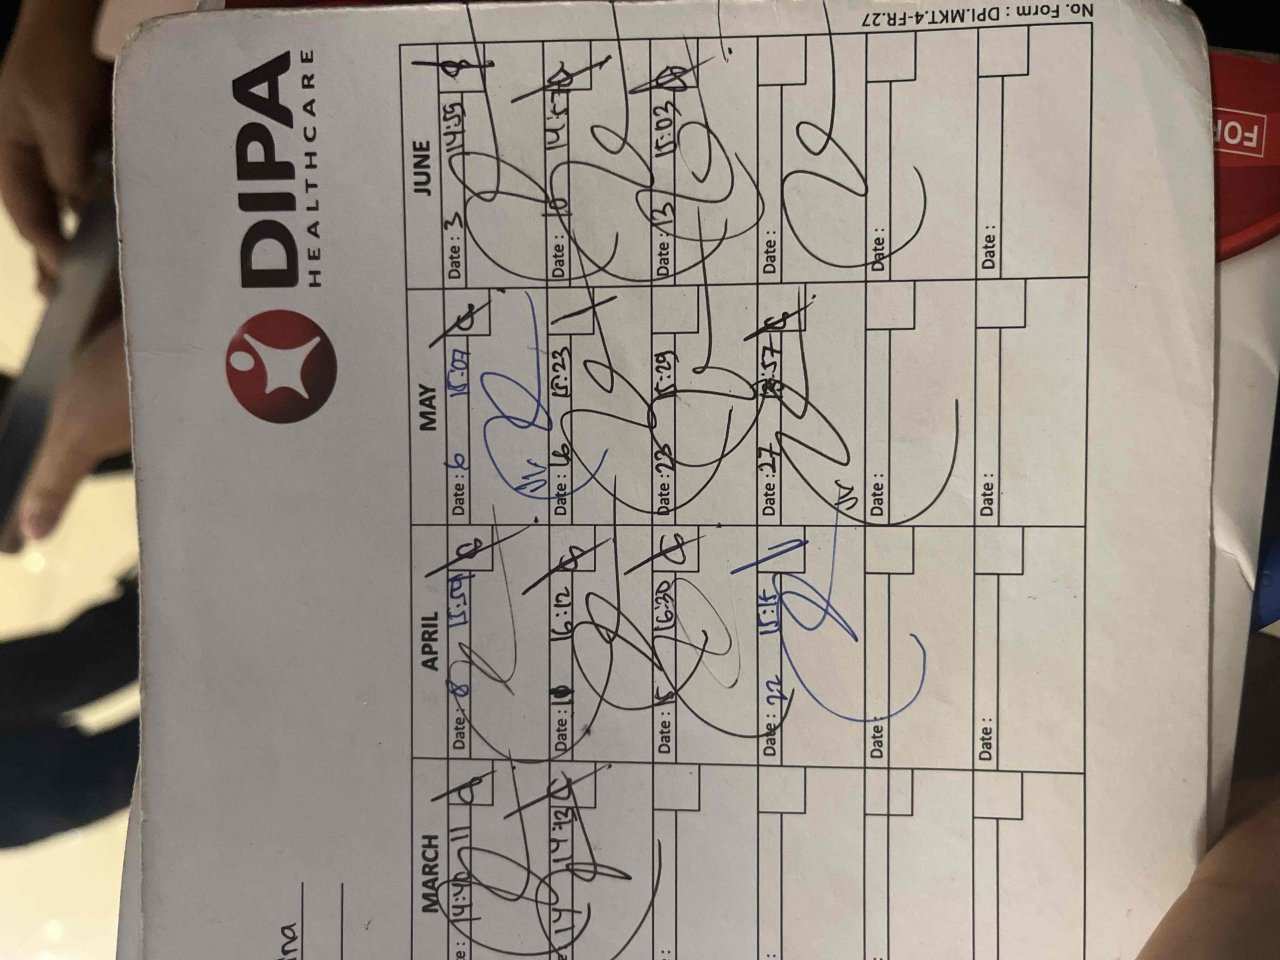 No. Form : DPI.MKT.4-FR.27
DIPA
HEALTHCARE
FOR
ina
MARCH
APRIL
MAY
JUNE
14:40 11
Date: 8 15:59
Date: 6 15:07
Date: 3 14:59
14 14:43
Date: 10 16:12
Date: 16 15:23
Date: 10 14:57
Date: 15 16:30
Date: 23 15:29
Date: 13 15:03
Date: 22 15:15
Date: 27
Date:
Date:
Date:
Date:
Date:
Date:
Date: